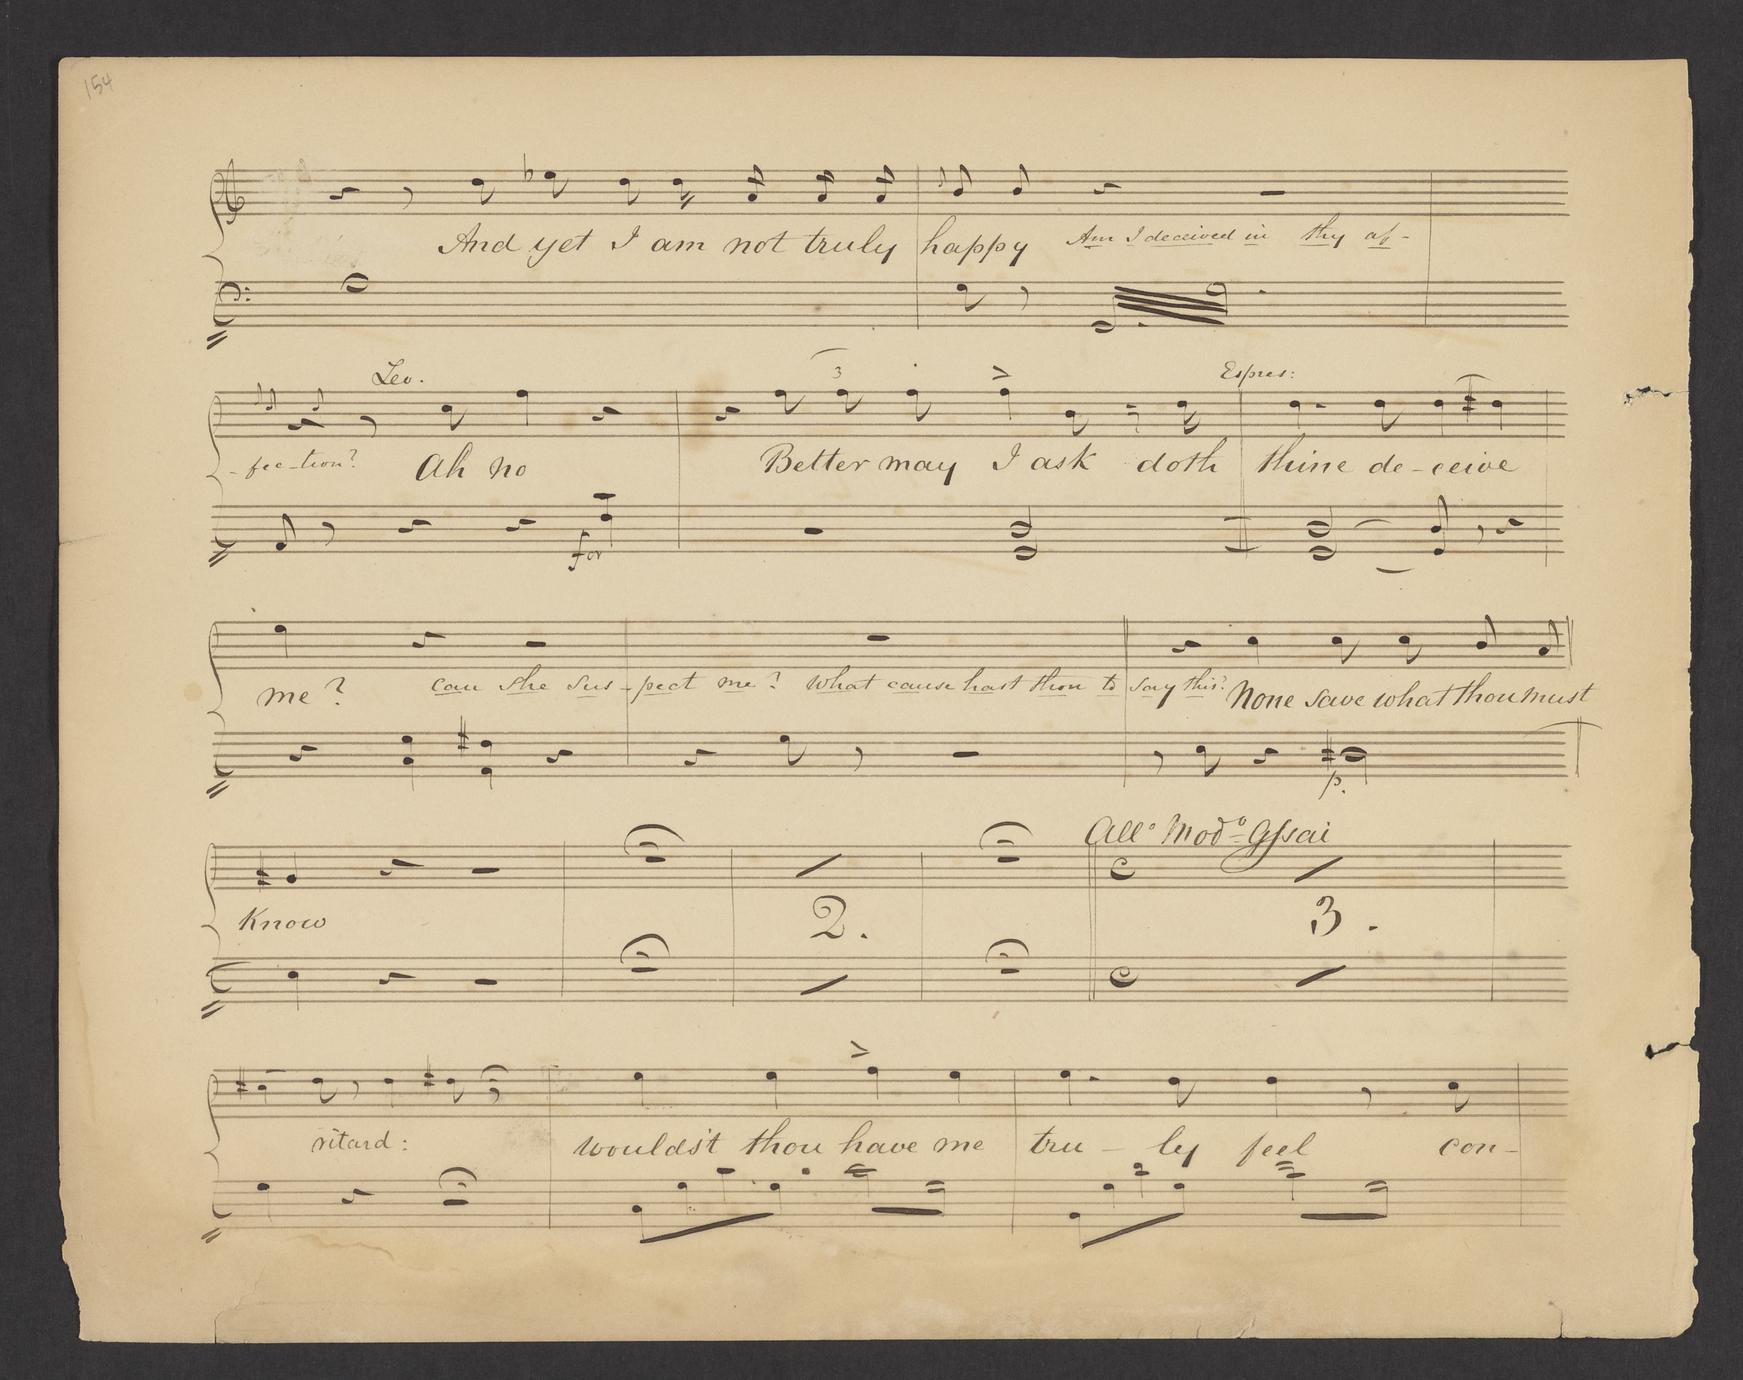 154
And yet I am not truly happy Am I deceived in thy af-
Leo. Espres:
3
-fec-tion? Ah no Better may I ask doth thine de-ceive
for
me? can she sus-pect me? what cause hast thou to say this? None save what thou must
p.
Allo Modo Assai
Know 2. 3.
ritard: wouldst thou have me tru-ly feel con-